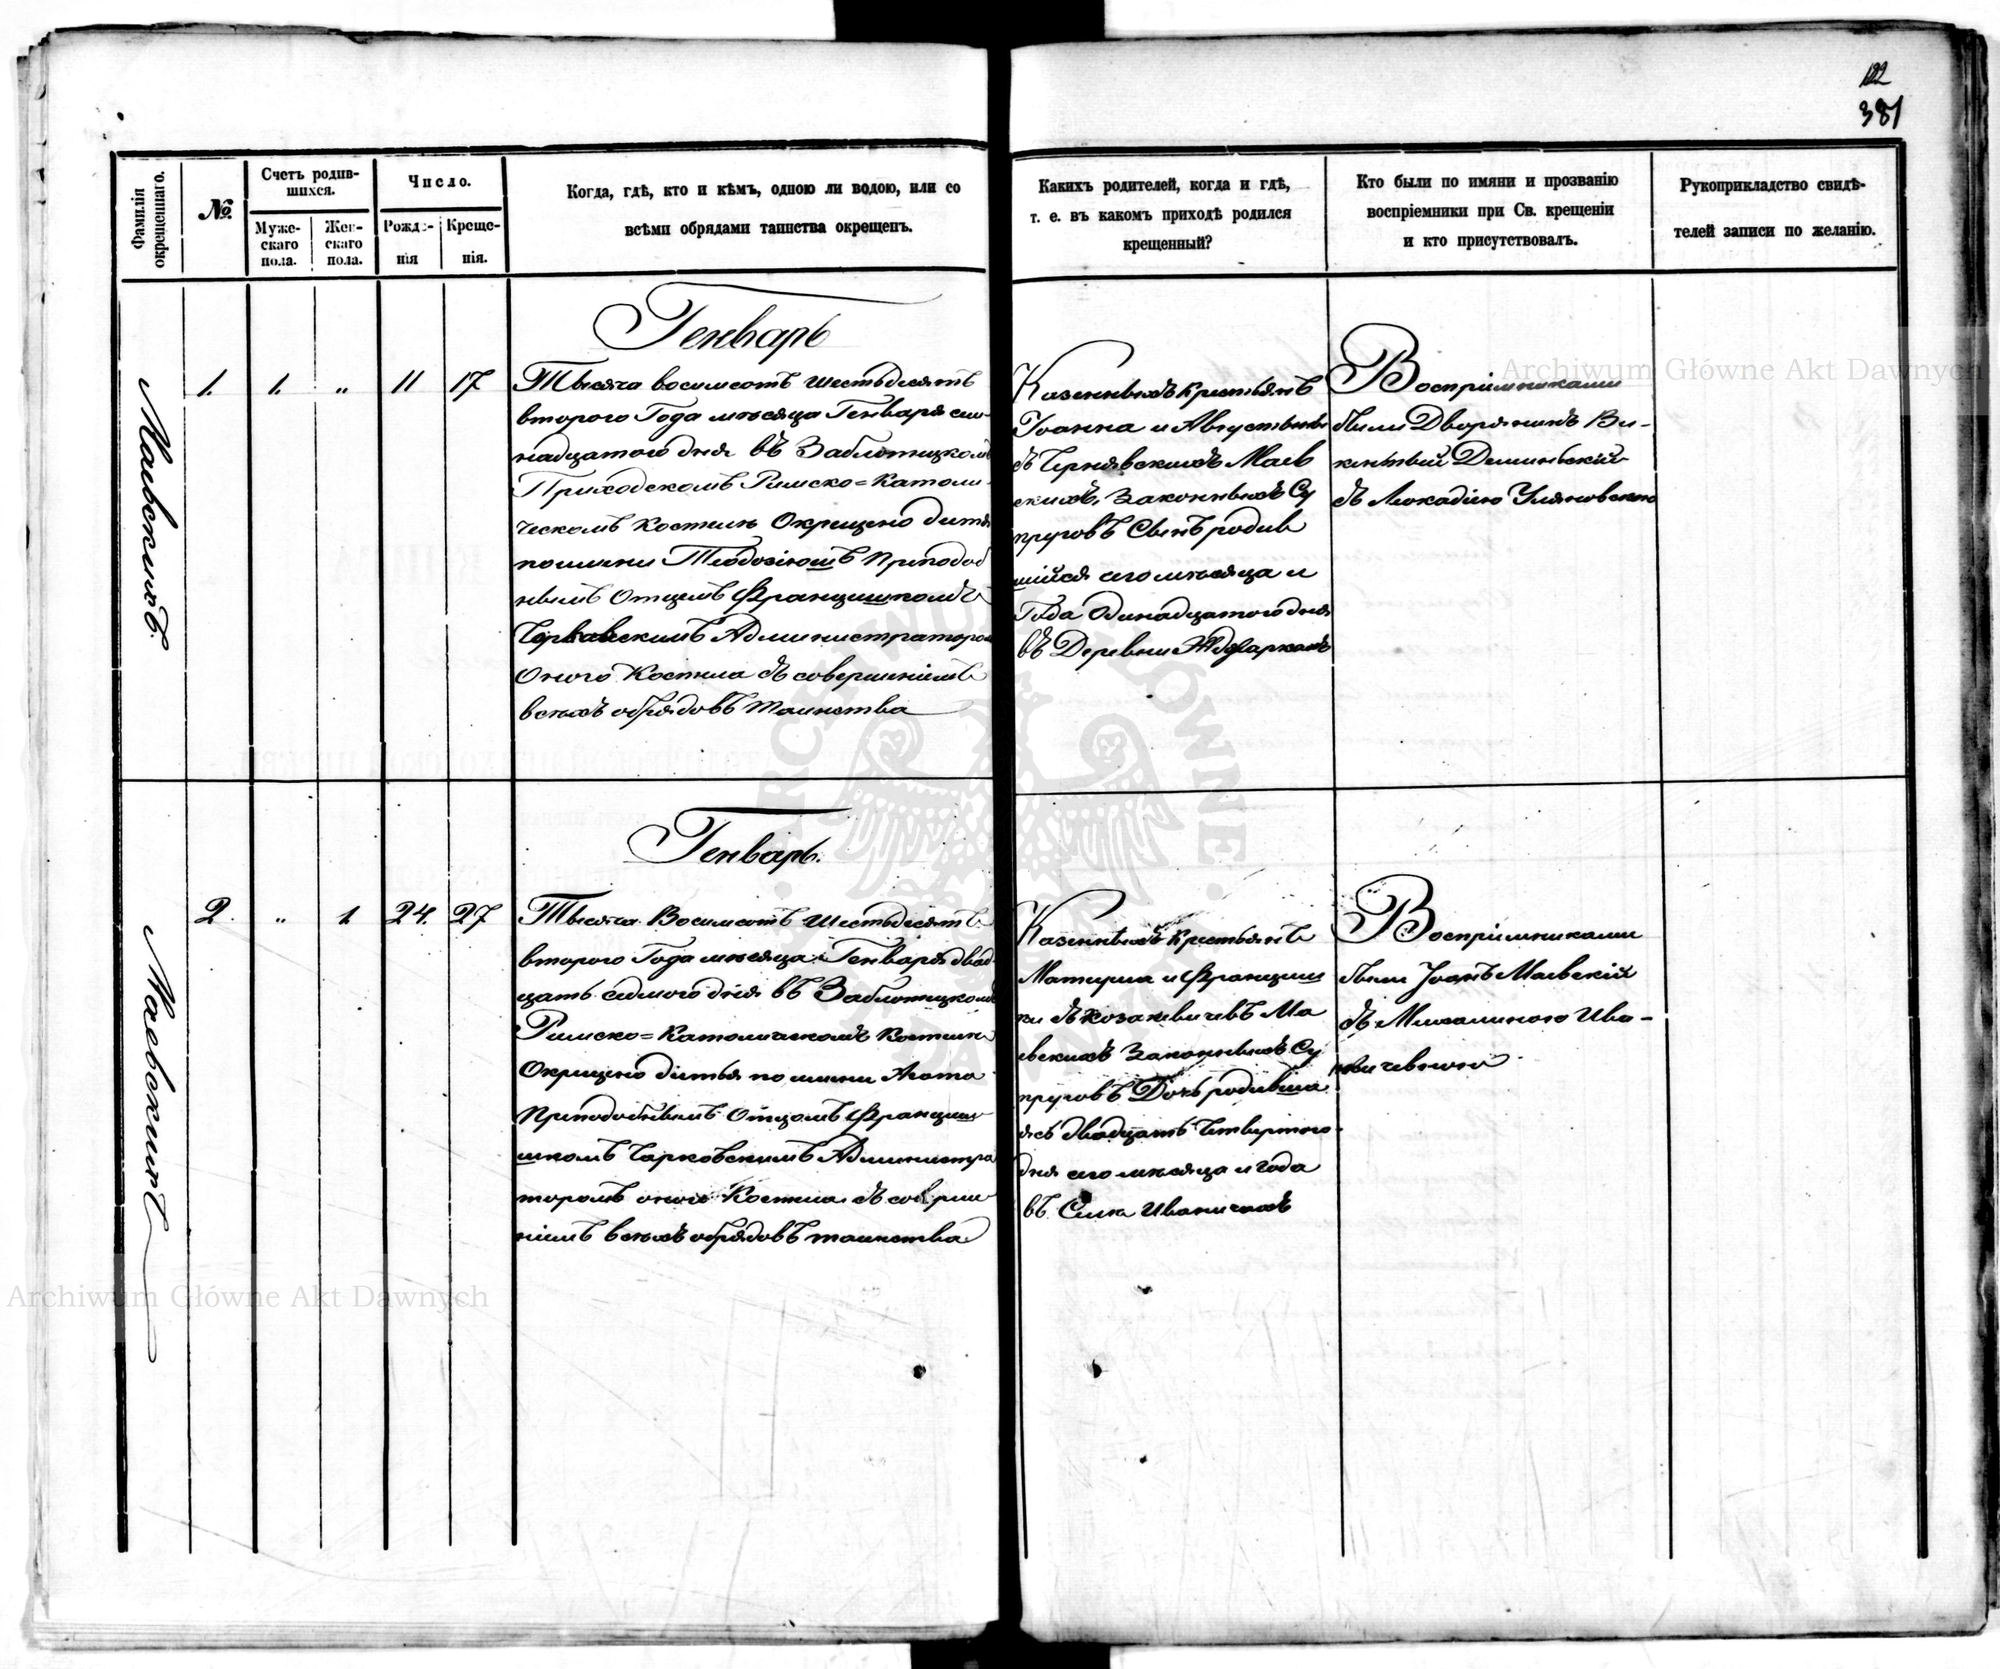 122
381
Фамилія окрещеннаго.
№.
Счетъ родив-
шихся.
Муже-
скаго
пола.
Жен-
скаго
пола.
Число.
Рожде-
нія
Креще-
нія.
Когда, гдѣ, кто и кѣмъ, одною ли водою, или со
всѣми обрядами таинства окрещенъ.
Какихъ родителей, когда и гдѣ,
т. е. въ какомъ приходѣ родился
крещенный?
Кто были по имяни и прозванію
воспріемники при Св. крещеніи
и кто присутствовалъ.
Рукоприкладство свидѣ-
телей записи по желанію.
Маевскихъ.
1.
1.
"
11
17
Генварь
Тысяча восимсотъ шестьдесятъ
втораго Года мѣсяца Генваря сим-
надцатого дня въ Заблотецкомъ
Приходскомъ Римско=Католи-
ческомъ Костелѣ Окрещено дитя
по имени Теодозіюшъ Преподоб
нымъ Отцемъ Францишкомъ
Администраторомъ
Оного Костела съ совершеніемъ
всѣхъ обрядовъ таинства
Казенныхъ Крестьянъ
Іоанна и Августины
съ Чернявскихъ Маев
скихъ, Законныхъ Су
пруговъ Сынъ родив
шійся сего мѣсяца и
Года Одинадцатого дня
въ Деревни
Воспріемниками
были Дворянинъ Ви-
кентый
съ Леокадіею Уляновскою
Маевскихъ
2.
"
1
24.
27
Генварь.
Тысяча Восимсотъ Шестьдесятъ
втораго Года мѣсяца Генваря двад
цать седмого дня въ Заблотецкомъ
Римско=Католическомъ Костелѣ
Окрещено дитья по имени Агата
Преподобнымъ Отцомъ Францишк
шкомъ Чарковскимъ Администра
торомъ оного Костела съ соверше
ніемъ всѣхъ обрядовъ таинства
Казенныхъ Крестьянъ
Матеуша и Францишк
ки съ Козакевичевъ Ма
евскихъ Законныхъ Су
пруговъ Дочь родивша
ясь двадцать Четвертого
дня сего мѣсяца и года
въ Селѣ Иваничахъ
Воспріемниками
были Іоанъ Маевскій
съ Михалиною Ива-
новичевною
Archiwum Główne Akt Dawnych
Archiwum Główne Akt Dawnych
ARCHIWUM GŁÓWNE AKT DAWNYCH